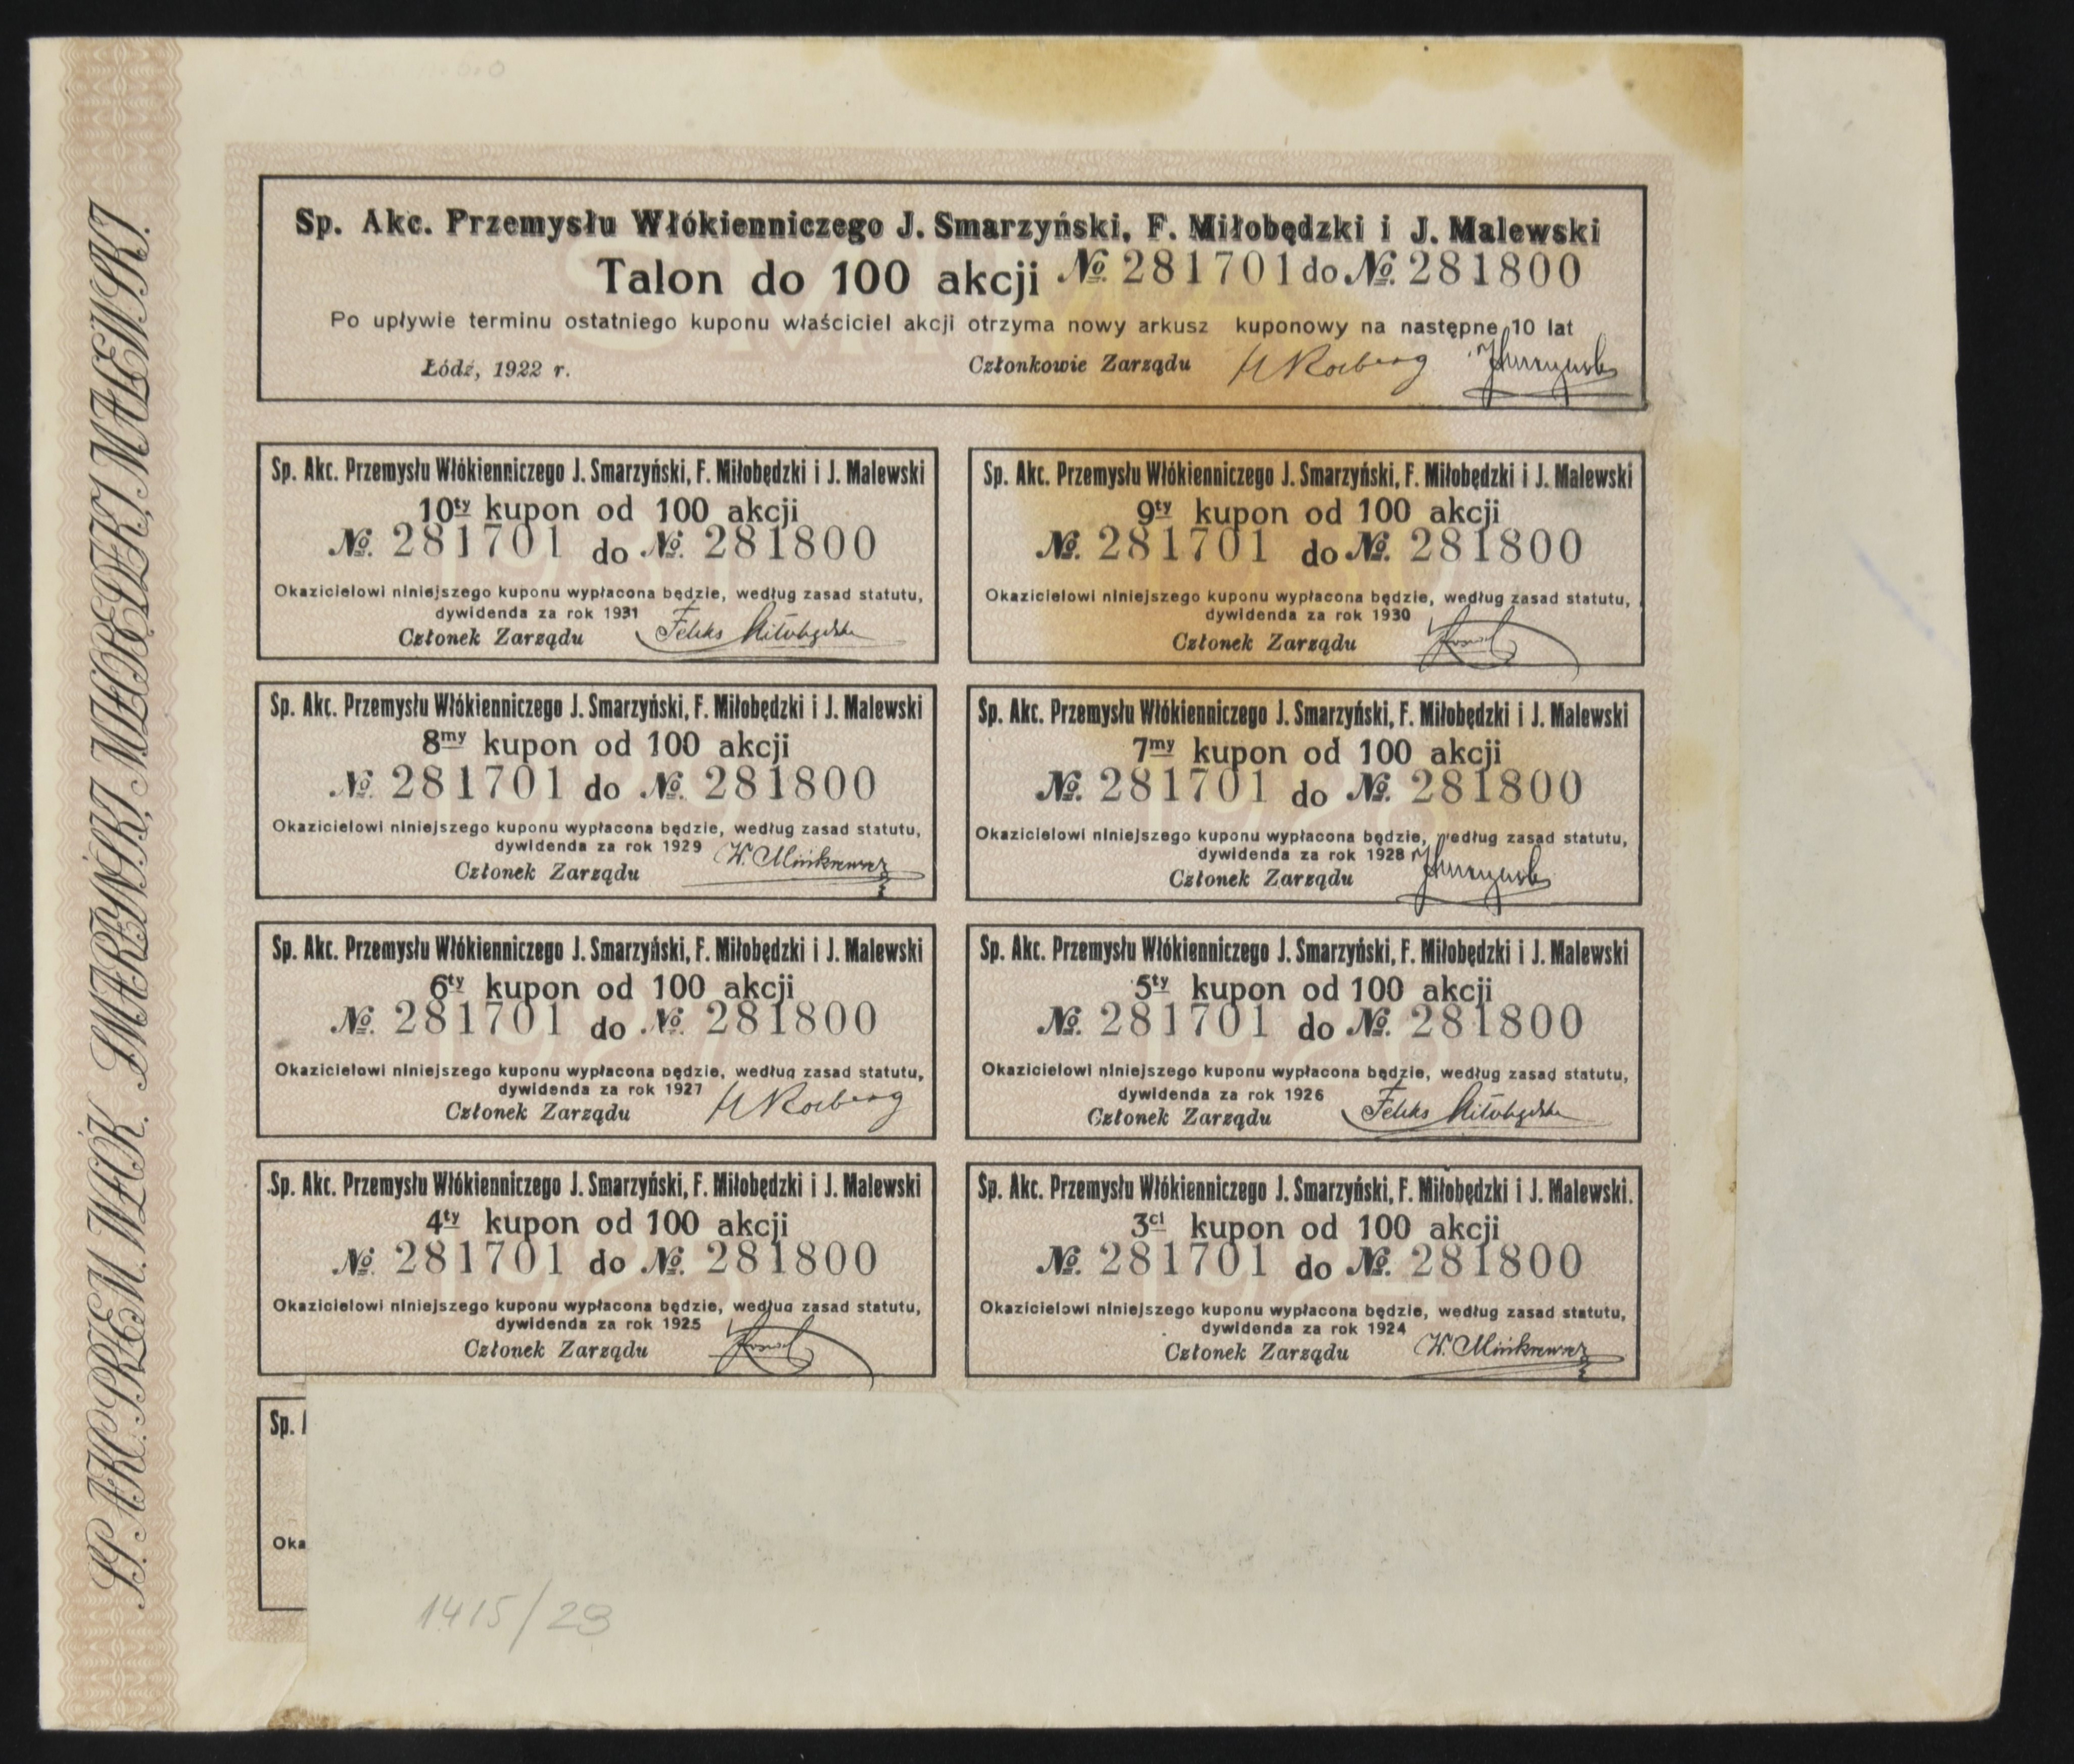 SP. AKC. PRZEM. WŁÓK. SMARZYŃSKI, MIŁOBĘDZKI, MALEWSKI.
Sp. Akc. Przemysłu Włókienniczego J. Smarzyński, F. Miłobędzki i J. Malewski
Talon do 100 akcji № 281701 do № 281800
Po upływie terminu ostatniego kuponu właściciel akcji otrzyma nowy arkusz kuponowy na następne 10 lat
Łódź, 1922 r. Członkowie Zarządu
Sp. Akc. Przemysłu Włókienniczego J. Smarzyński, F. Miłobędzki i J. Malewski
10ty kupon od 100 akcji
№ 281701 do № 281800
Okazicielowi niniejszego kuponu wypłacona będzie, według zasad statutu,
dywidenda za rok 1931
Członek Zarządu Feliks Miłobędzki
Sp. Akc. Przemysłu Włókienniczego J. Smarzyński, F. Miłobędzki i J. Malewski
9ty kupon od 100 akcji
№ 281701 do № 281800
Okazicielowi niniejszego kuponu wypłacona będzie, według zasad statutu,
dywidenda za rok 1930
Członek Zarządu
Sp. Akc. Przemysłu Włókienniczego J. Smarzyński, F. Miłobędzki i J. Malewski
8my kupon od 100 akcji
№ 281701 do № 281800
Okazicielowi niniejszego kuponu wypłacona będzie, według zasad statutu,
dywidenda za rok 1929
Członek Zarządu
Sp. Akc. Przemysłu Włókienniczego J. Smarzyński, F. Miłobędzki i J. Malewski
7my kupon od 100 akcji
№ 281701 do № 281800
Okazicielowi niniejszego kuponu wypłacona będzie, według zasad statutu,
dywidenda za rok 1928
Członek Zarządu
Sp. Akc. Przemysłu Włókienniczego J. Smarzyński, F. Miłobędzki i J. Malewski
6ty kupon od 100 akcji
№ 281701 do № 281800
Okazicielowi niniejszego kuponu wypłacona będzie, według zasad statutu,
dywidenda za rok 1927
Członek Zarządu
Sp. Akc. Przemysłu Włókienniczego J. Smarzyński, F. Miłobędzki i J. Malewski
5ty kupon od 100 akcji
№ 281701 do № 281800
Okazicielowi niniejszego kuponu wypłacona będzie, według zasad statutu,
dywidenda za rok 1926
Członek Zarządu Feliks Miłobędzki
Sp. Akc. Przemysłu Włókienniczego J. Smarzyński, F. Miłobędzki i J. Malewski
4ty kupon od 100 akcji
№ 281701 do № 281800
Okazicielowi niniejszego kuponu wypłacona będzie, według zasad statutu,
dywidenda za rok 1925
Członek Zarządu
Sp. Akc. Przemysłu Włókienniczego J. Smarzyński, F. Miłobędzki i J. Malewski.
3ci kupon od 100 akcji
№ 281701 do № 281800
Okazicielowi niniejszego kuponu wypłacona będzie, według zasad statutu,
dywidenda za rok 1924
Członek Zarządu
Sp.
Oka
1415/28